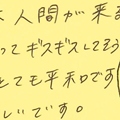 人間が来
ってギスギスしてそう
とても平和です
いです。